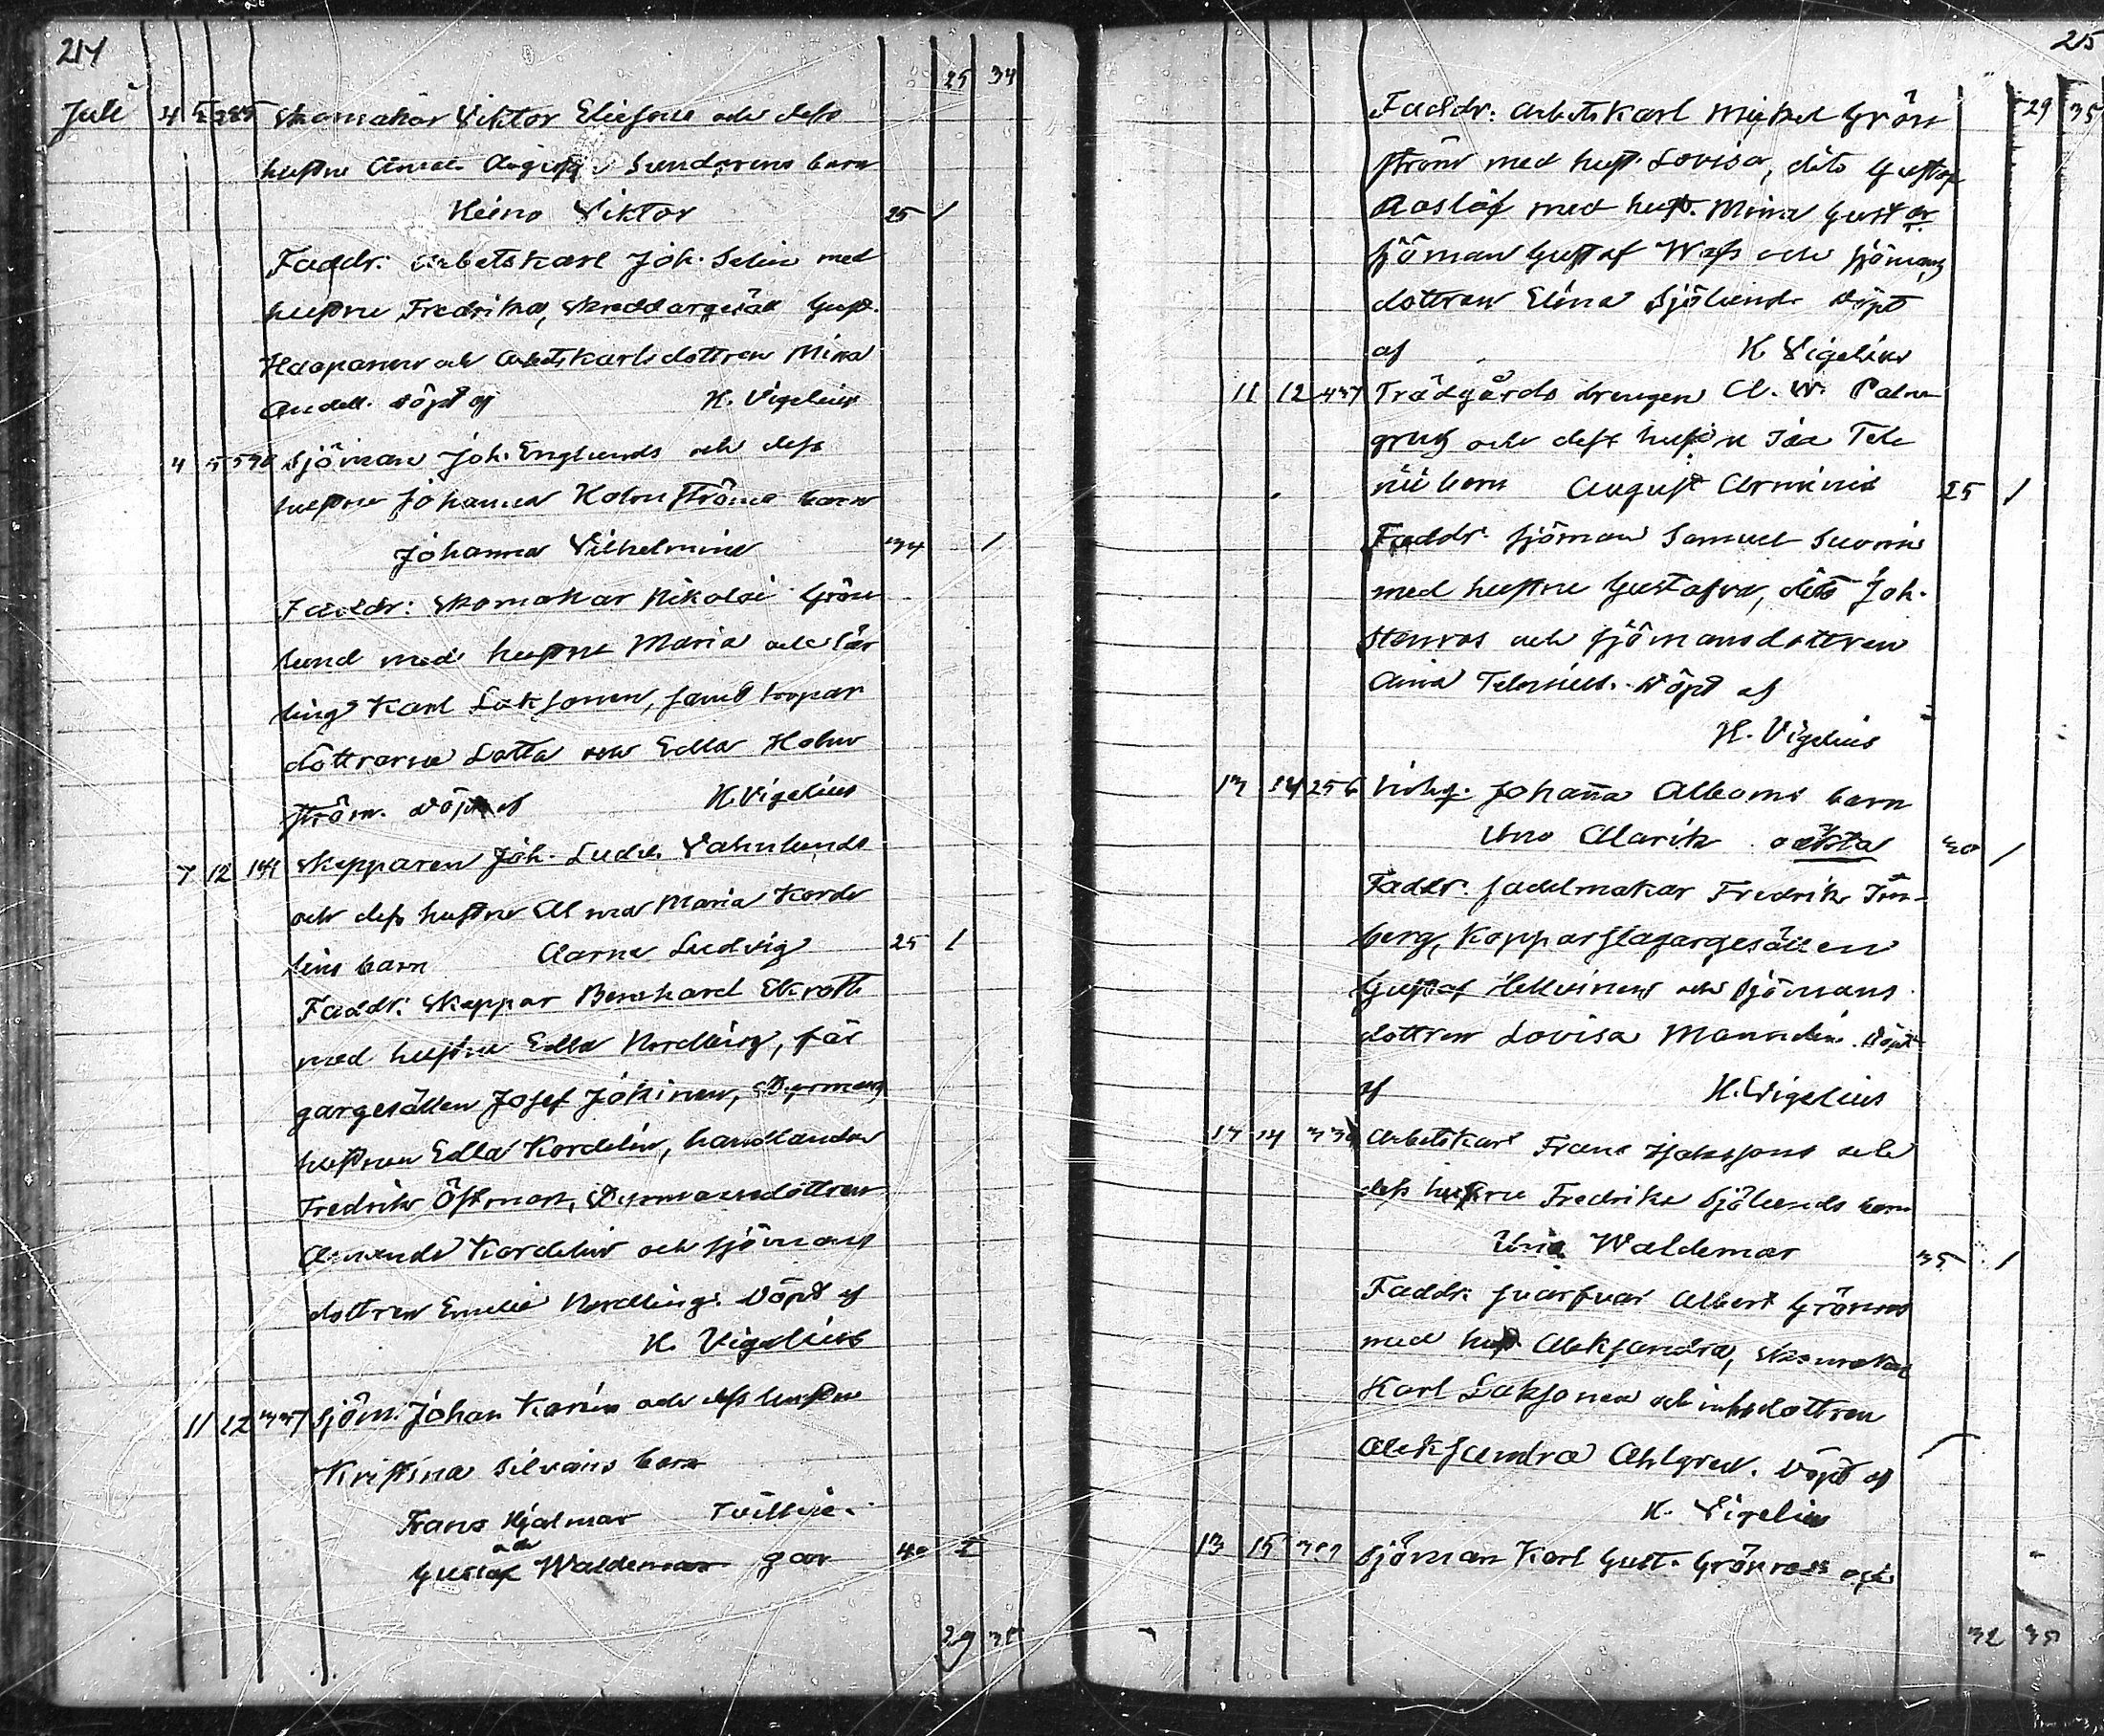 214
25 34
Juli 4 5 285 Skomakar Viktor Eliesons och dess
hustru Amal. Augusta Sundgrens barn
Heino Viktor 25 /
Faddr: Arbetskarl Joh. Selin med
hustru Fredrika, skreddargesäll Gust.
Haapanen och Arbetskarlsdottren Mina
Andell. Döpt af H. Vigelius
4 5 590 Sjöman Joh. Englunds och dess
hustru Johanna Holmströms barn
Johanna Vilhelmina 34 /
Faddr: Skomakar Nikolai Grön
lund med hustru Maria och lär
ling Karl Laksonen, samt
döttrarna Lotta och Edla Holm
ström. Döpt af H. Vigelius
7 12 141 Skepparen Joh. Ludv. Vahnlunds
och dess hustru Alma Maria Korde
lins barn Aarne Ludvig 25 /
Faddr: Skeppar Bernhard Ekroth
med hustru Edla Nordling, fär
gargesällen Josef Jokinen, Styrmans
hustrun Edla Kordelin, handlanden
Fredrik Östman, Styrmansdottren
Amanda Kordelin och sjömans
dottren Emelie Nordling. Döpt af
H. Vigelius
11 12 337 Sjöm. Johan Karins och dess hustru
Kristina Silvains barn
Frans Hjalmar Tvillin-
och
Gustaf Waldemar gar 40 2
29 35
215
29 35
Faddr: Arbetskarl Mickel Grön
ström med hust. Lovisa, dito Gustaf
Aaslöf med hust. Mina Gust
sjöman Gustaf Wass och sjömans
dottren Elina Sjölund. Döpt
af H. Vigelius
11 12 437 Trädgårds drengen A. W. Palm
grens och dess hustru Ida Tele
nii barn August Arminius 25 /
Faddr: sjöman Samuel Suomi
med hustru Gustafva, dito Joh.
Stenros och sjömansdottren
Aina Telenius. Döpt af
H. Vigelius
13 14 256 Johanna Alboms barn
Uno Alarik oäkta 30 /
Faddr. sadelmakar Fredrik
berg, Kopparslagargesällen
Gustaf Helkvinen och sjömans
dottren Lovisa Mannelin. Döpt
af H. Vigelius
13 14 Arbetskarl Frans Isakssons och
dess hustru Fredrika Sjölunds barn
Waldemar 35 /
Faddr: svarfvar Albert Grönroos
med hust. Aleksandra, skomakar
Karl Laksonen och inhsdottren
Aleksandra Ahlgren. Döpt af
H. Vigelius
13 15 Sjöman Karl Gust. Grönroos och
32 35